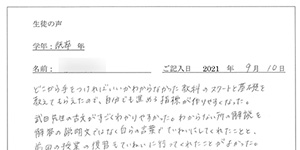 生徒の声
学年: 既卒 年
名前: ご記入日 2021 年 9 月 10 日
どこから手をつければいいかわからなかった教科のスタートと基礎を
教えてもらえたので、自分でも進める指標が作りやすくなった。
武田先生の古文がすごくわかりやすかった。わからない所の解説を
解答の説明文ではなく自らの言葉でていねいにしてくれたことと、
前回の授業の復習をていねいに行ってくれたことがよかった。